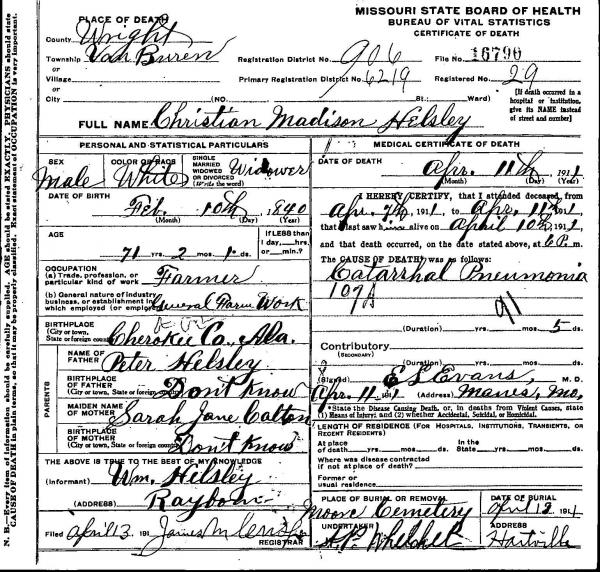 MISSOURI STATE BOARD OF HEALTH
BUREAU OF VITAL STATISTICS
CERTIFICATE OF DEATH
PLACE OF DEATH
County Wright
Township Van Buren
or
Village
or
City (NO. St. Ward)
Registration District No. 906
File No. 16790
Primary Registration District No. 6219
Registered No. 29
[If death occurred in a
hospital or institution,
give its NAME instead
of street and number]
FULL NAME Christian Madison Helsley
PERSONAL AND STATISTICAL PARTICULARS
SEX Male
COLOR OR RACE White
SINGLE
MARRIED
WIDOWED
OR DIVORCED
(Write the word)
Widower
DATE OF BIRTH
Feb. 10th 1840
(Month) (Day) (Year)
AGE
71 yrs. 2 mos. 1 ds.
If LESS than
1 day,....hrs.
or....min.?
OCCUPATION
(a) Trade, profession, or
particular kind of work Farmer
(b) General nature of industry
business, or establishment in
which employed (or employer) General Farm Work
BIRTHPLACE
(City or town,
State or foreign country) Cherokee Co., Ala.
PARENTS
NAME OF
FATHER Peter Helsley
BIRTHPLACE
OF FATHER
(City or town, State or foreign country) Don't Know
MAIDEN NAME
OF MOTHER Sarah Jane Calton
BIRTHPLACE
OF MOTHER
(City or town, State or foreign country) Don't Know
THE ABOVE IS TRUE TO THE BEST OF MY KNOWLEDGE
(Informant) Wm. Helsley
(ADDRESS) Rayborn
Filed April 13 191 James M
REGISTRAR
MEDICAL CERTIFICATE OF DEATH
DATE OF DEATH
Apr. 11th 1911
(Month) (Day) (Year)
I HEREBY CERTIFY, that I attended deceased from
Apr. 7th, 1911, to Apr. 11th, 1911
that I last saw him alive on April 10th, 1911
and that death occurred, on the date stated above, at 6 P.m.
The CAUSE OF DEATH was as follows:
Catarrhal Pneumonia
107A
91
(Duration) yrs. mos. 5 ds.
Contributory
(SECONDARY)
(Duration) yrs. mos. ds.
(Signed) E S Evans, M. D.
Apr. 11, 1911 (Address) Manes, Mo.
*State the Disease Causing Death, or, in deaths from Violent Causes, state
(1) Means of Injury; and (2) whether Accidental, Suicidal, or Homicidal.
LENGTH OF RESIDENCE (FOR HOSPITALS, INSTITUTIONS, TRANSIENTS, OR
RECENT RESIDENTS)
At place
of death yrs. mos. ds.
In the
State yrs. mos. ds.
Where was disease contracted
if not at place of death?
Former or
usual residence
PLACE OF BURIAL OR REMOVAL
Moore Cemetery
DATE OF BURIAL
April 12 1911
UNDERTAKER
A.P. Whelchel
ADDRESS
Hartville
N. B.—Every item of information should be carefully supplied. AGE should be stated EXACTLY. PHYSICIANS should state
CAUSE OF DEATH in plain terms, so that it may be properly classified. Exact statement of OCCUPATION is very important.